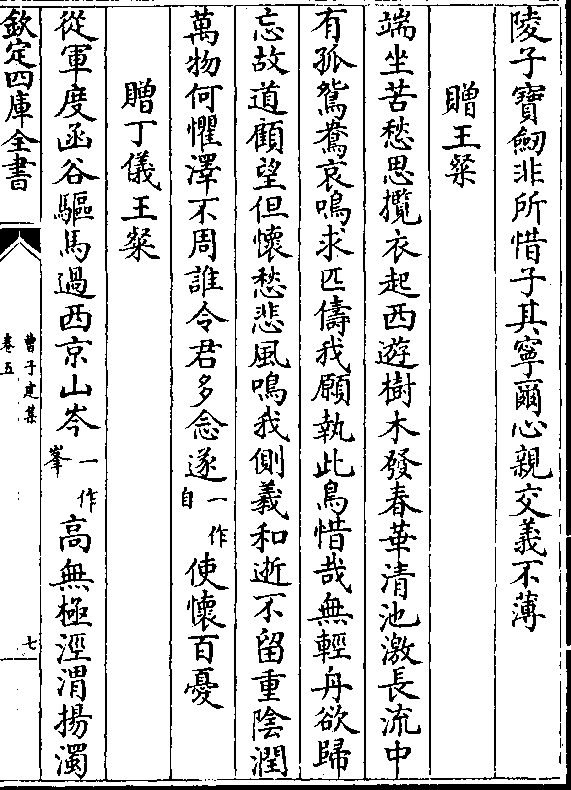 陵子寳劒非所惜子其寧爾心親交義不薄
贈王粲
端坐苦愁思攬衣起西遊樹木發春華清池激長流中
有孤鴛鴦哀鳴求匹儔我願執此鳥惜哉無輕舟欲歸
忘故道顧望但懷愁悲風鳴我側義和逝不留重陰潤
萬物何懼澤不周誰令君多念遂一作自使懷百憂
贈丁儀王粲
從軍度函谷驅馬過西京山岑一作峯高無極涇渭揚濁
欽定四庫全書
曹子建集
卷五
七